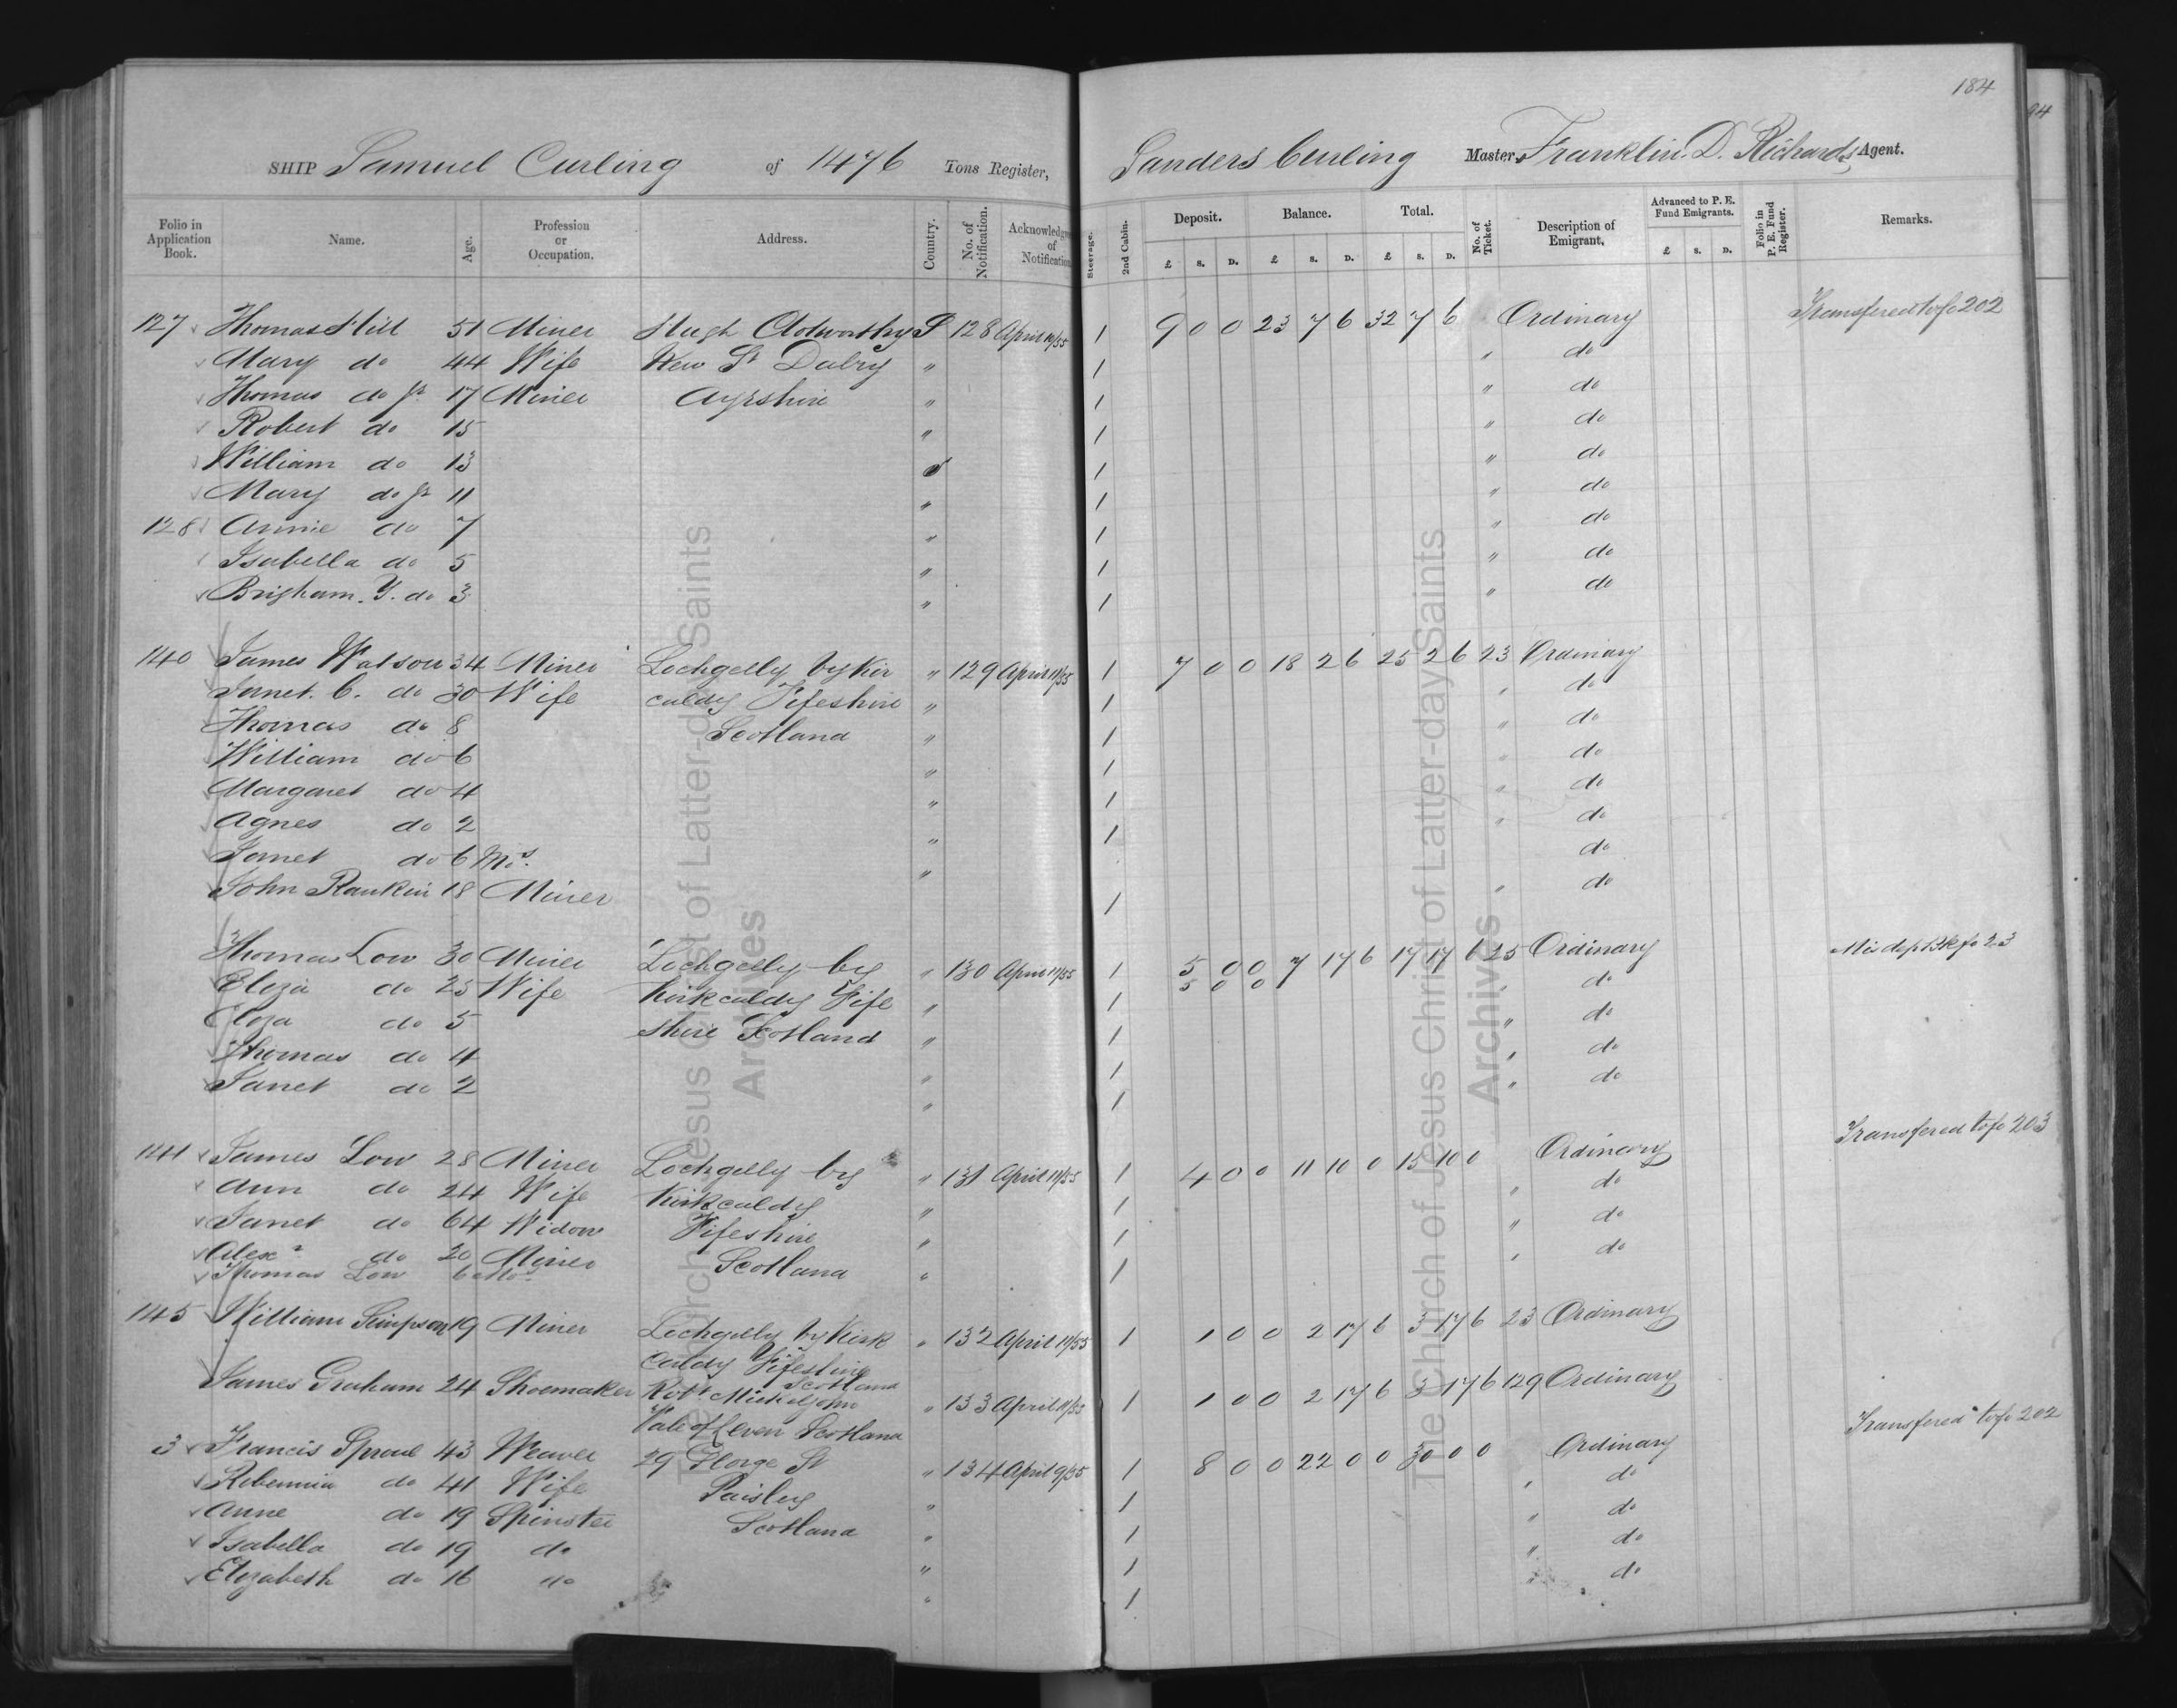 184
94
SHIP Samuel Curling of 1476 Tons Register, Sanders Curling Master, Franklin. D. Richards Agent.
Folio in Application Book. Name. Age. Profession or Occupation. Address. Country. No. of Notification. Acknowledg of Notification Steerage. 2nd Cabin. Deposit. £ s. D. Balance. £ s. D. Total. £ s. D. No. of Ticket. Description of Emigrant. Advanced to P. E. Fund Emigrants. £ s. D. Folio in P. E. Fund Register. Remarks.
127 Thomas Hill 51 Miner Hugh Clotworthy S 128 April 10/55 1 9 0 0 23 7 6 32 7 6 Ordinary Transfered to fo 202
Mary do 44 Wife New St Dalry " 1 " do
Thomas do Jr 17 Miner Ayrshire " 1 " do
Robert do 15 " 1 " do
William do 13 " 1 " do
Mary do Jr 11 " 1 " do
128 Annie do 7 " 1 " do
Isabella do 5 " 1 " do
Brigham. Y. do 3 " 1 " do
140 James Watson 34 Miner Lochgelly by Kir " 129 April 11/55 1 7 0 0 18 2 6 25 2 6 23 Ordinary
Janet. C. do 30 Wife caldy Fifeshire " 1 " do
Thomas do 8 Scotland " 1 " do
William do 6 " 1 " do
Margaret do 4 " 1 " do
Agnes do 2 " 1 " do
Janet do 6 Mos. " do
John Rankin 18 Miner 1 " do
Thomas Low 30 Miner Lochgelly by " 130 April 11/55 1 5 0 0 7 17 6 17 17 6 25 Ordinary Mis dep Bk fo 23
Eliza do 25 Wife Kirkcaldy Fife " 1 5 0 0 " do
Eliza do 5 shire Scotland " 1 " do
Thomas do 4 " 1 " do
Janet do 2 " 1 " do
141 James Low 28 Miner Lochgelly by " 131 April 11/55 1 4 0 0 11 10 0 15 10 0 Ordinary Transfered to fo 203
Ann do 24 Wife Kirkcaldy " 1 " do
Janet do 64 Widow Fifeshire " 1 " do
Alexr do 20 Miner Scotland " 1 " do
Thomas Low 6 Mos
145 William Simpson 19 Miner Lochgelly by Kirk " 132 April 11/55 1 1 0 0 2 17 6 3 17 6 23 Ordinary
caldy Fifeshire Scotland
James Graham 24 Shoemaker Robt " 133 April 11/55 1 1 0 0 2 17 6 3 17 6 129 Ordinary
Vale of Leven Scotland
3 Francis Sproul 43 Weaver 29 George St " 134 April 9/55 1 8 0 0 22 0 0 30 0 0 Ordinary Transfered to fo 202
do 41 Wife Paisley " 1 " do
Anne do 19 Spinster Scotland " 1 " do
Isabella do 19 do " 1 " do
Elizabeth do 16 do " 1 " do
The Church of Jesus Christ of Latter-day Saints
Archives
The Church of Jesus Christ of Latter-day Saints
Archives